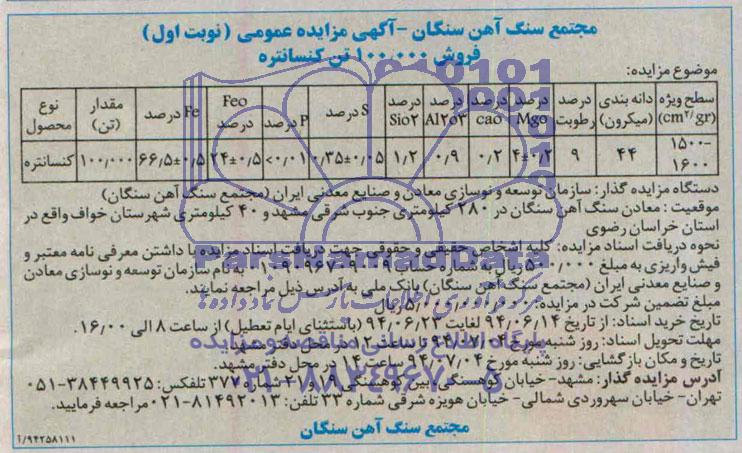 مجتمع سنگ آهن سنگان -آگهی مزایده عمومی (نوبت اول)
فروش ۱۰۰,۰۰۰ تن کنسانتره
موضوع مزایده:
نوع محصول | مقدار (تن) | Fe درصد | Feo درصد | P درصد | S درصد | درصد Sio۲ | درصد Al۲o۳ | درصد cao | درصد Mgo | درصد رطوبت | دانه بندی (میکرون) | سطح ویژه (cm۲/gr)
کنسانتره | ۱۰۰,۰۰۰ | ۶۶,۵±۰,۵ | ۲۴±۰,۵ | <۰,۰۱ | ۰,۳۵±۰,۰۵ | ۱,۲ | ۰,۹ | ۰,۲ | ۴±۰,۲ | ۹ | ۴۴ | ۱۵۰۰-۱۶۰۰
دستگاه مزایده گذار: سازمان توسعه و نوسازی معادن و صنایع معدنی ایران (مجتمع سنگ آهن سنگان)
موقعیت: معادن سنگ آهن سنگان در ۲۸۰ کیلومتری جنوب شرقی مشهد و ۴۰ کیلومتری شهرستان خواف واقع در
استان خراسان رضوی
نحوه دریافت اسناد مزایده: کلیه اشخاص حقیقی و حقوقی جهت دریافت اسناد مزایده با داشتن معرفی نامه معتبر و
فیش واریزی به مبلغ ۵۰۰,۰۰۰ ریال به شماره حساب به نام سازمان توسعه و نوسازی معادن
و صنایع معدنی ایران (مجتمع سنگ آهن سنگان) بانک ملی به آدرس ذیل مراجعه نمایند.
مبلغ تضمین شرکت در مزایده: ریال
تاریخ خرید اسناد: از تاریخ ۹۴,۰۶,۱۴ لغایت ۹۴,۰۶,۲۳ (باستثنای ایام تعطیل) از ساعت ۸ الی ۱۶,۰۰.
مهلت تحویل اسناد: روز شنبه مورخ ۹۴/۰۷/۰۴ تا ساعت ۱۲ در محل دفتر مشهد
تاریخ و مکان بازگشایی: روز شنبه مورخ ۹۴,۰۷,۰۴ ساعت ۱۴ در محل دفتر مشهد.
آدرس مزایده گذار: مشهد- خیابان کوهسنگی، بین کوهسنگی ۱۹ و ۲۱ شماره ۳۷۷ تلفکس: ۳۸۴۴۹۹۲۵-۰۵۱
تهران- خیابان سهروردی شمالی- خیابان هویزه شرقی شماره ۳۳ تلفن: ۸۱۴۹۲۰۱۳-۰۲۱ مراجعه فرمایید.
مجتمع سنگ آهن سنگان
۹۴۲۵۸۱۱۱/آ
ParsNamadData
پایگاه اطلاع رسانی مناقصه و مزایده